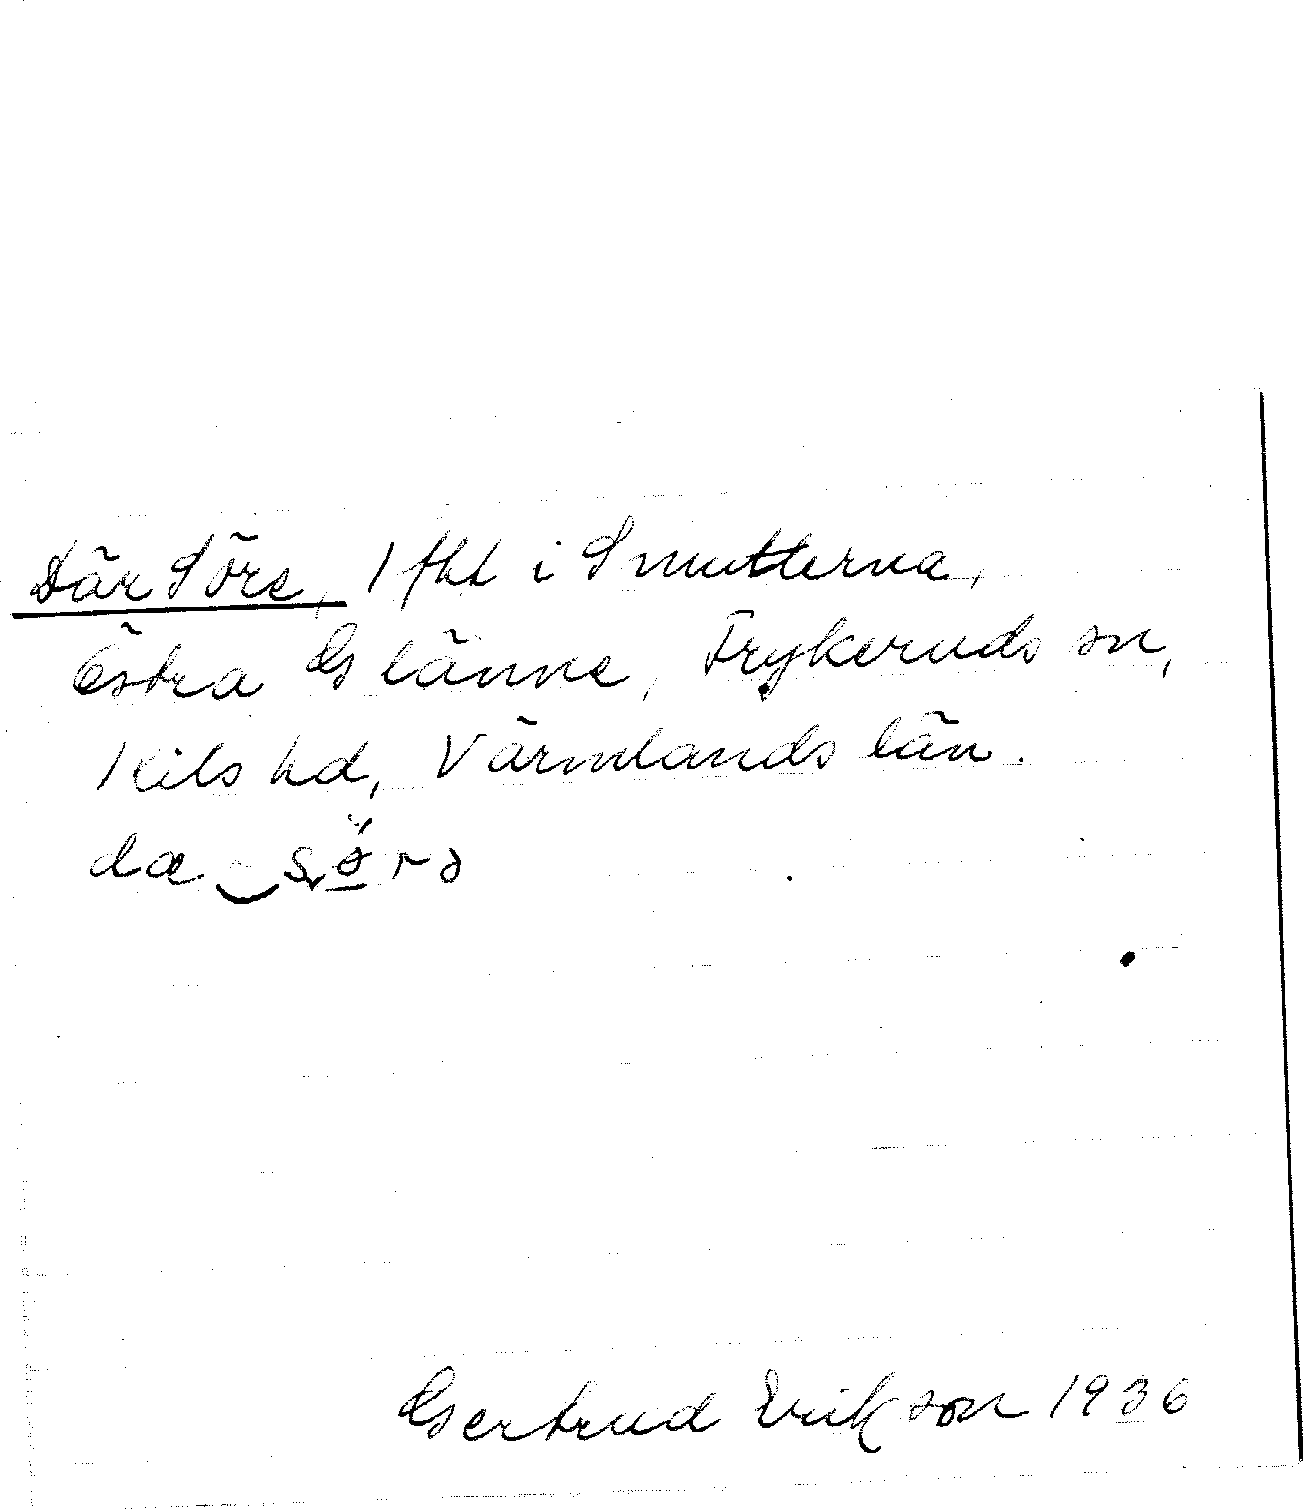 Där Söre, 1 fht i Smutterna,
Östra Glänne, Frykeruds sn,
Kils hd, Värmlands län.
dæ‿sö̱rə
Gertrud Erikson 1936